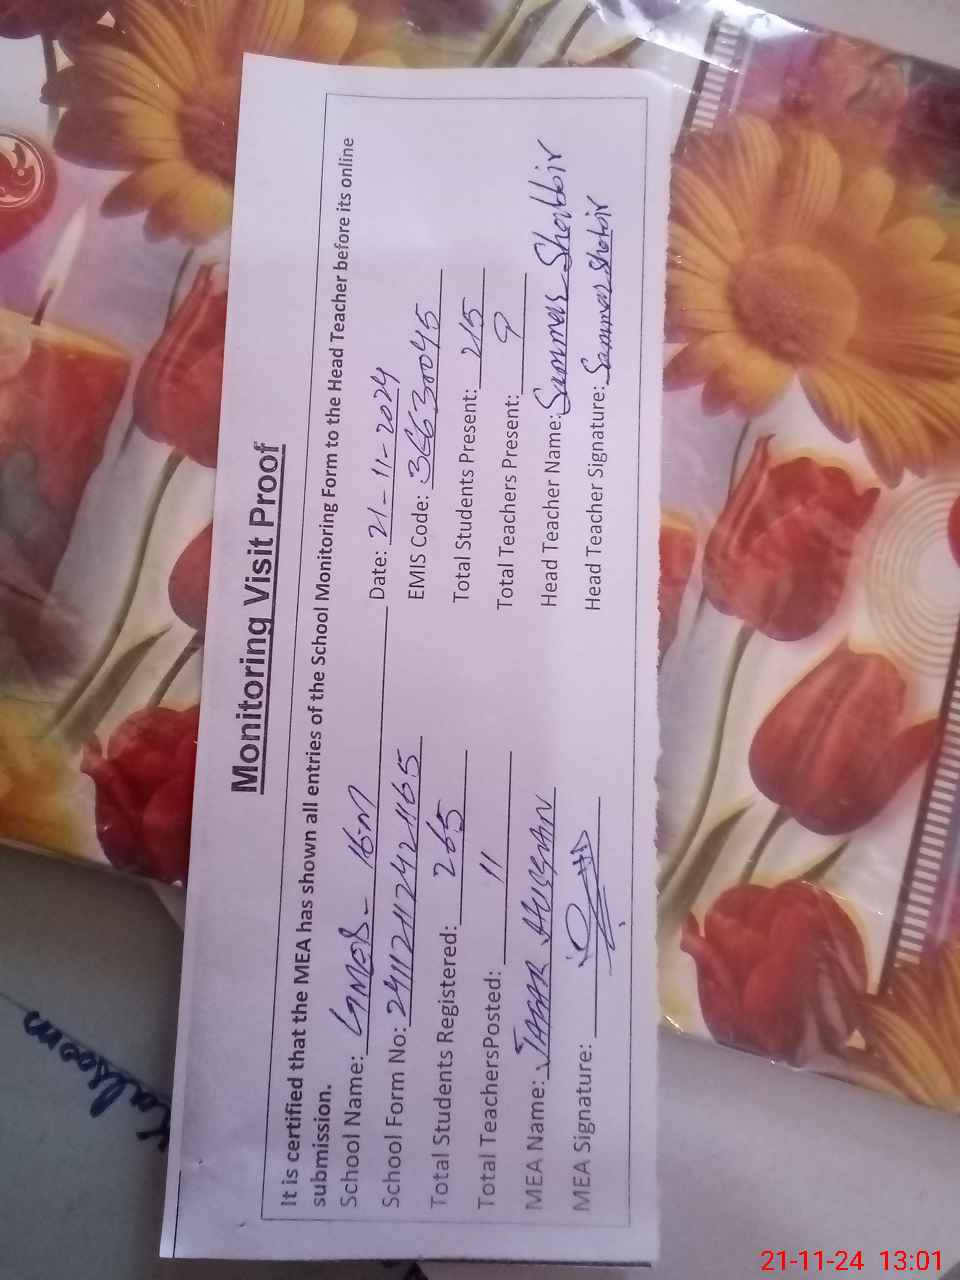 Monitoring Visit Proof
It is certified that the MEA has shown all entries of the School Monitoring Form to the Head Teacher before its online
submission.
School Name: GMES- 16-M Date: 21-11-2024
School Form No: 24112117424165 EMIS Code: 36630045
Total Students Registered: 265 Total Students Present: 215
Total TeachersPosted: 11 Total Teachers Present: 9
MEA Name: JAFAR HUSSAIN Head Teacher Name: Sammar Shabbir
MEA Signature: Head Teacher Signature: Sammar Shabbir
Kalsoom
21-11-24 13:01